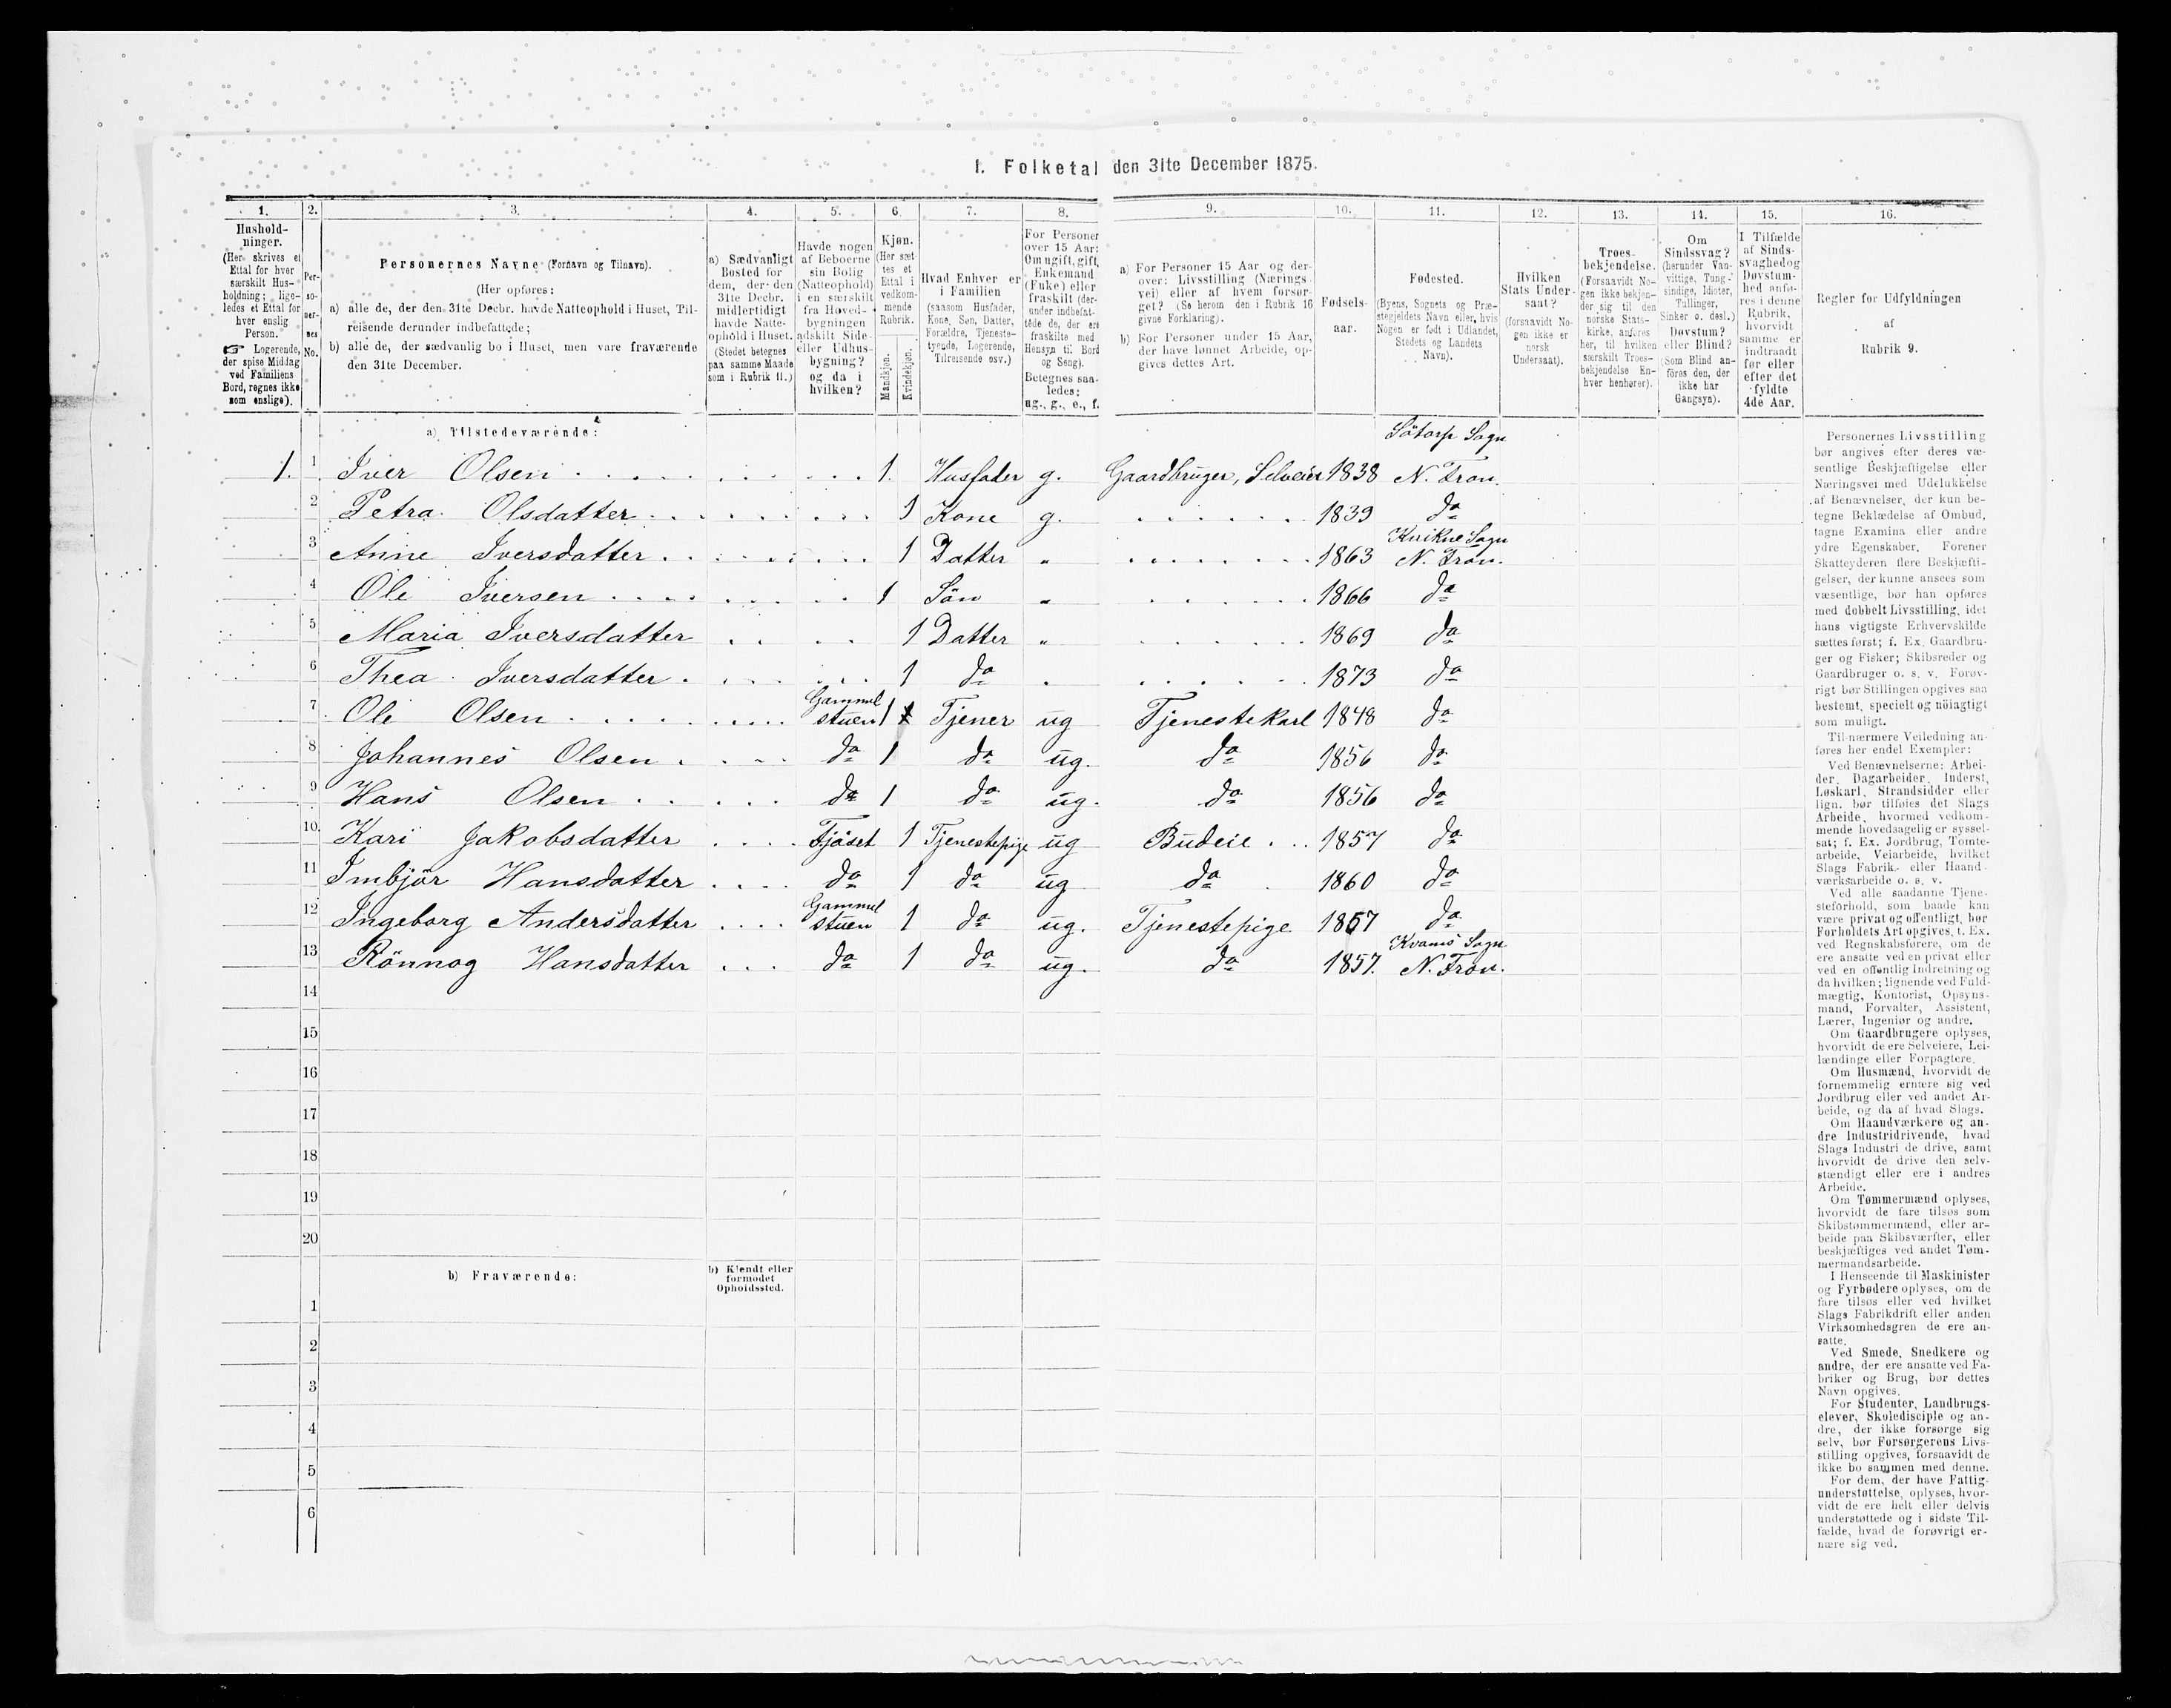 I. Folketal den 31te December 1875.
1. 2. 3. 4. 5. 6. 7. 8. 9. 10. 11. 12. 13. 14. 15. 16.
Hushold-
ninger.
(Her skrives et
Ettal for hver
særskilt Hus-
holdning; lige-
ledes et Ettal for
hver enslig
Person.
☞ Logerende,
der spise Middag
ved Familiens
Bord, regnes ikke
som enslige).
Per-
so-
ner-
nes
No.
Personernes Navne (Fornavn og Tilnavn).
(Her opføres:
a) alle de, der den 31te Decbr. havde Natteophold i Huset, Til-
reisende derunder indbefattede;
b) alle de, der sædvanlig bo i Huset, men vare fraværende
den 31te December.
a) Sædvanligt
Bosted for
dem, der den
31te Decbr.
midlertidigt
havde Natte-
ophold i Huset.
(Stedet betegnes
paa samme Maade
som i Rubrik 11.)
Havde nogen
af Beboerne
sin Bolig
(Natteophold)
i en særskilt
fra Hoved-
bygningen
adskilt Side-
eller Udhus-
bygning?
og da i
hvilken?
Kjøn.
(Her sæt-
tes et
Ettal i
vedkom-
mende
Rubrik.
Mandkjøn.
Kvindekjøn.
Hvad Enhver er
i Familien
(saasom Husfader,
Kone, Søn, Datter,
Forældre, Tjeneste-
tyende, Logerende,
Tilreisende osv.)
For Personer
over 15 Aar:
Om ugift, gift,
Enkemand
(Enke) eller
fraskilt (der-
under indbefat-
tede de, der ere
fraskilte med
Hensyn til Bord
og Seng).
Betegnes saa-
ledes:
ug., g., e., f.
a) For Personer 15 Aar og der-
over: Livsstilling (Nærings-
vei) eller af hvem forsør-
get? (Se herom den i Rubrik 16
givne Forklaring).
b) For Personer under 15 Aar,
der have lønnet Arbeide, op-
gives dettes Art.
Fødsels-
aar.
Fødested.
(Byens, Sognets og Præ-
stegjeldets Navn eller, hvis
Nogen er født i Udlandet,
Stedets og Landets
Navn).
Hvilken
Stats Under-
saat?
(forsaavidt No-
gen ikke er
norsk
Undersaat).
Troes-
bekjendelse.
(Forsaavidt No-
gen ikke bekjen-
der sig til den
norske Stats-
kirke, anføres
her, til hvilken
særskilt Troes-
bekjendelse En-
hver henhører).
Om
Sindssvag?
(herunder Van-
vittige, Tung-
sindige, Idioter,
Tullinger,
Sinker o. desl.)
Døvstum?
eller Blind?
(Som Blind an-
føres den, der
ikke har
Gangsyn).
I Tilfælde
af Sinds-
svaghed og
Døvstum-
hed anfø-
res i denne
Rubrik,
hvorvidt
samme er
indtraadt
før eller
efter det
fyldte
4de Aar.
Regler for Udfyldningen
af
Rubrik 9.
a) Tilstedeværende:
Sötorp Sogn
1. 1 Iver Olsen 1. Husfader g. Gaardbruger, Selveier 1838 N. Fron.
2 Petra Olsdatter 1 Kone g. 1839 do
Kvikne Sogn
3 Anne Iversdatter 1 Datter " 1863 N. Fron.
4 Ole Iversen 1 Sön " 1866 do
5 Maria Iversdatter 1 Datter " 1869 do
6 Thea Iversdatter 1 do 1873 do
7 Ole Olsen Gammelstuen 1 Tjener ug Tjenestekarl 1848 do
8 Johannes Olsen do 1 do ug. do 1856 do
9 Hans Olsen do 1 do ug. do 1856 do
10 Kari Jakobsdatter Fjöset 1 Tjenestepige ug Budeie 1857 do
11 Imbjör Hansdatter do 1 do ug do 1860 do
12 Ingeborg Andersdatter Gammelstuen 1 do ug. Tjenestepige 1857 do
Kvams Sogn
13 Rönnog Hansdatter do 1 do ug. do 1857. N. Fron.
14
15
16
17
18
19
20
b) Fraværende:
b) Kjendt eller
formodet
Opholdssted.
1
2
3
4
5
6
Personernes Livsstilling
bør angives efter deres væ-
sentlige Beskjæftigelse eller
Næringsvei med Udelukkelse
af Benævnelser, der kun be-
tegne Beklædelse af Ombud,
tagne Examina eller andre
ydre Egenskaber. Forener
Skatteyderen flere Beskjæfti-
gelser, der kunne ansees som
væsentlige, bør han opføres
med dobbelt Livsstilling, idet
hans vigtigste Erhvervskilde
sættes først; f. Ex. Gaardbru-
ger og Fisker; Skibsreder og
Gaardbruger o. s. v. Forøv-
rigt bør Stillingen opgives saa
bestemt, specielt og nöiagtigt
som muligt.
Til nærmere Veiledning an-
føres her endel Exempler:
Ved Benævnelserne: Arbei-
der, Dagarbeider, Inderst,
Løskarl, Strandsidder eller
lign. bør tilføies det Slags
Arbeide, hvormed vedkom-
mende hovedsagelig er syssel-
sat; f. Ex. Jordbrug, Tomte-
arbeide, Veiarbeide, hvilket
Slags Fabrik- eller Haand-
værksarbeide o. s. v.
Ved alle saadanne Tjene-
steforhold, som baade kan
være privat og offentligt, bør
Forholdets Art opgives, t. Ex.
ved Regnskabsførere, om de
ere ansatte ved en privat eller
ved en offentlig Indretning og
da hvilken; lignende ved Fuld-
mægtig, Kontorist, Opsyns-
mand, Forvalter, Assistent,
Lærer, Ingeniør og andre.
Om Gaardbrugere oplyses,
hvorvidt de ere Selveiere, Lei-
lændinge eller Forpagtere.
Om Husmænd, hvorvidt de
fornemmelig ernære sig ved
Jordbrug eller ved andet Ar-
beide, og da af hvad Slags.
Om Haandværkere og an-
dre Industridrivende, hvad
Slags Industri de drive, samt
hvorvidt de drive den selv-
stændigt eller ere i andres
Arbeide.
Om Tømmermænd oplyses,
hvorvidt de fare tilsøs som
Skibstømmermænd, eller ar-
beide paa Skibsværfter, eller
beskjæftiges ved andet Tøm-
mermandsarbeide.
I Henseende til Maskinister
og Fyrbødere oplyses, om de
fare tilsøs eller ved hvilket
Slags Fabrikdrift eller anden
Virksomhedsgren de ere an-
satte.
Ved Smede, Snedkere og
andre, der ere ansatte ved Fa-
briker og Brug, bør dettes
Navn opgives.
For Studenter, Landbrugs-
elever, Skoledisciple og an-
dre, der ikke forsørge sig
selv, bør Forsørgerens Livs-
stilling opgives, forsaavidt de
ikke bo sammen med denne.
For dem, der have Fattig-
understøttelse, oplyses, hvor-
vidt de ere helt eller delvis
understøttede og i sidste Til-
fælde, hvad de forøvrigt er-
nære sig ved.